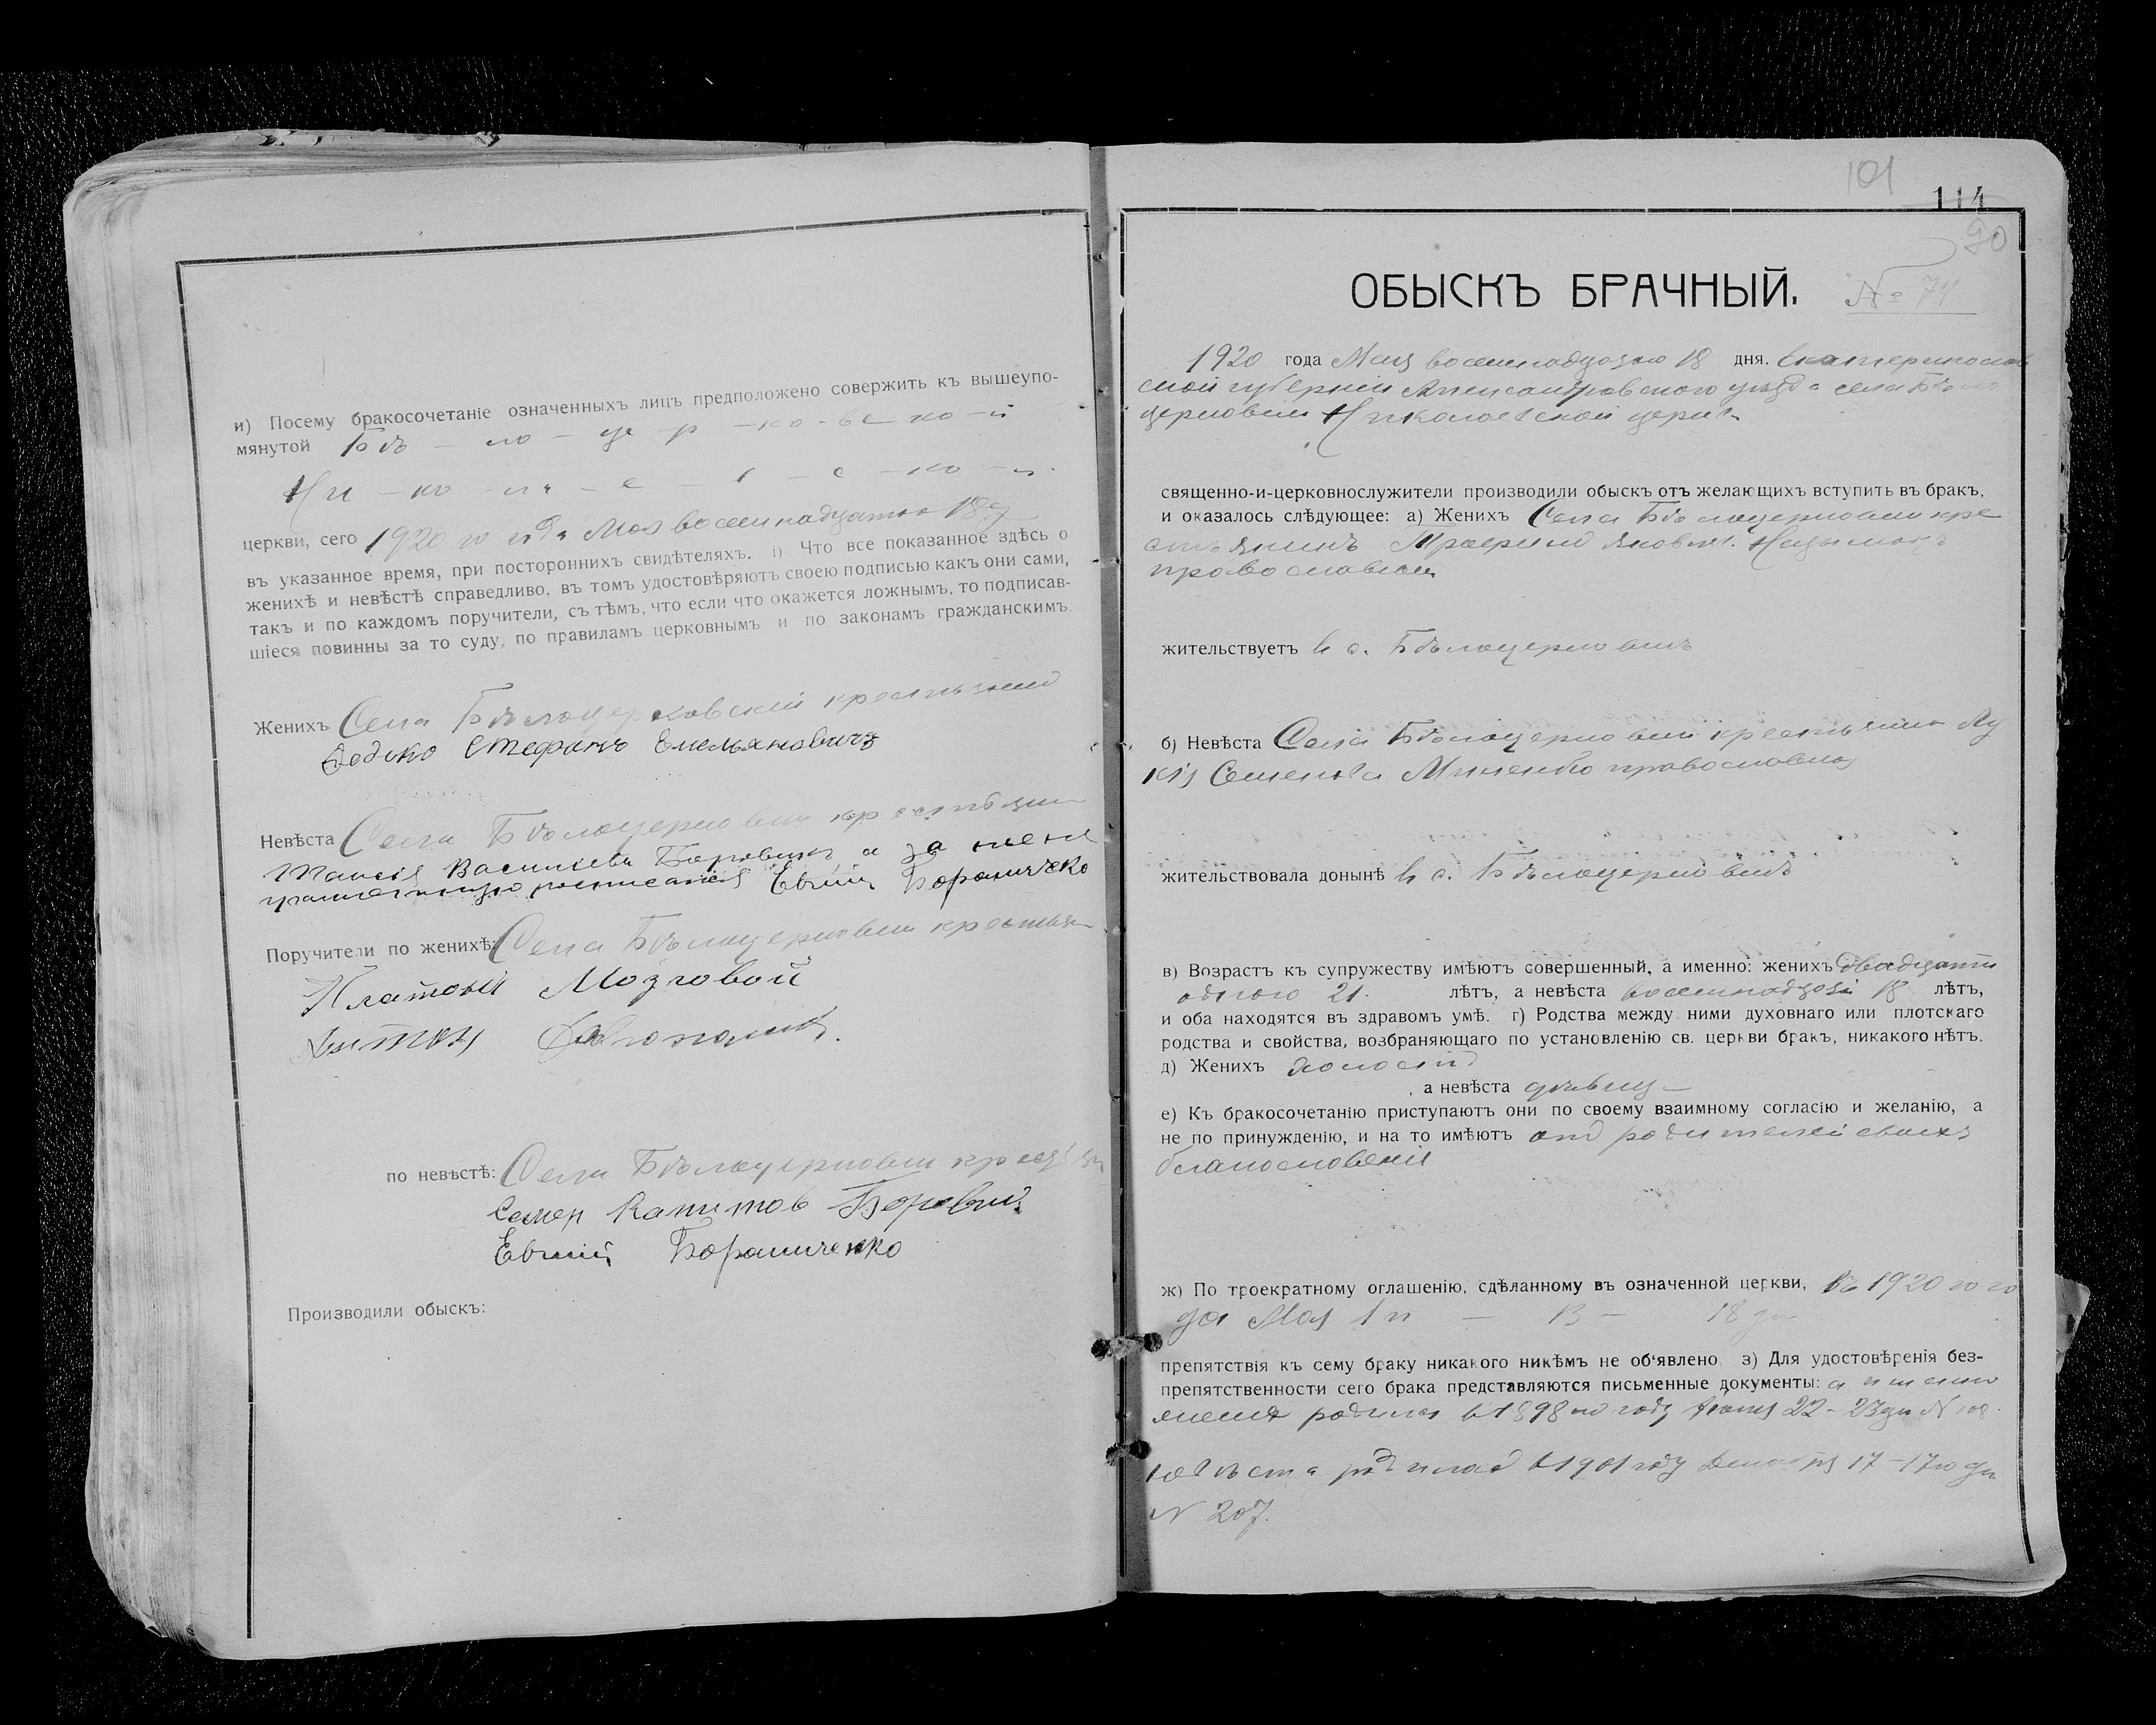 и) Посему бракосочетаніе означенныхъ лицъ предположено совержить къ вышеупо-
мянутой Бѣ - ло - це - р - ко - вс - ко - й
Ни - ко - ла - е - в - с - ко - й
церкви, сего 1920 го года Мая восемнадцатаго 18
въ указанное время, при постороннихъ свидѣтеляхъ. і) Что все показанное здѣсь о
женихѣ и невѣстѣ справедливо, въ томъ удостовѣряютъ своею подписью какъ они сами,
такъ и по каждомъ поручители, съ тѣмъ, что если что окажется ложнымъ, то подписав-
шіеся повинны за то суду, по правиламъ церковнымъ и по законамъ гражданскимъ.
Женихъ Села Бѣлоцерковски крестьянинъ
Стефанъ Емельяновичъ
Невѣста Села Бѣлоцерковки
Васильева Боровикъ а за нее
Евгній
Поручители по женихѣ: Села Бѣлоцерковки крестьяне
Платонъ Мозговой
Антон
по невѣстѣ: Села Бѣлоцерковки
Семен Капитов Боровик
Евгній
Производили обыскъ:
101
114
90
ОБЫСКЪ БРАЧНЫЙ. № 74
1920 года Мая 18 дня. Екатеринослав
ской губерніи Александровского уѣзда села Бѣло
церковки Николаевской церкви
священно-и-церковнослужители производили обыскъ отъ желающихъ вступить въ бракъ,
и оказалось слѣдующее: а) Женихъ Села Бѣлоцерковки кре
стьянинъ
православный
жительствуетъ в с. Бѣлоцерковкѣ
б) Невѣста Села Бѣлоцерковки Лу
кія Семенова православная
жительствовала донынѣ в с. Бѣлоцерковкѣ
в) Возрастъ къ супружеству имѣютъ совершенный, а именно: женихъ двадцати
одного 21. лѣтъ, а невѣста 18 лѣтъ,
и оба находятся въ здравомъ умѣ. г) Родства между ними духовнаго или плотскаго
родства и свойства, возбраняющаго по установленію св. церкви бракъ, никакого нѣтъ.
д) Женихъ холостъ
, а невѣста дѣвица
е) Къ бракосочетанію приступаютъ они по своему взаимному согласію и желанію, а
не по принужденію, и на то имѣютъ отъ родителей своихъ
благословеніе
ж) По троекратному оглашенію, сдѣланному въ означенной церкви, въ 1920 го го
да Мая 18
препятствія къ сему браку никакого никѣмъ не об'явлено. з) Для удостовѣренія без-
препятственности сего брака представляются письменные документы: а именно
женихъ родился в 1898 году 22 - 23 дн № 108
невѣста родилась в 1901 году Декабря 17 - 17 го дн
№ 207.